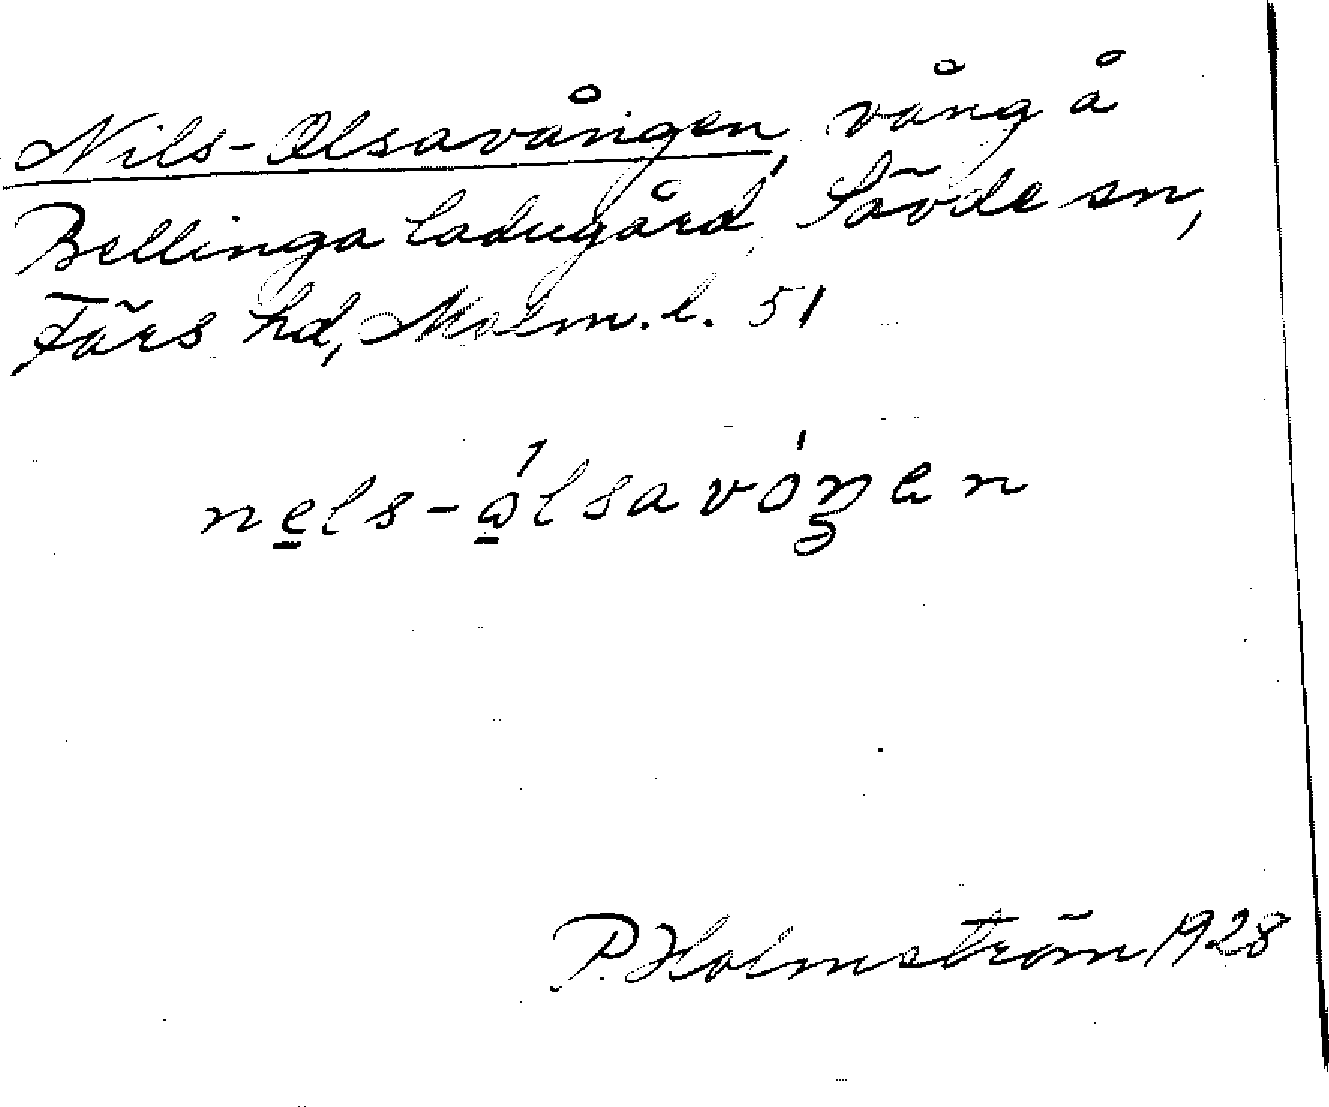 Nils-Olsavången, vång å
Bellinga ladugård, Sövde sn,
Färs hd, Malm. l. 51
nels-ålsavóŋen
P. Holmström 1928